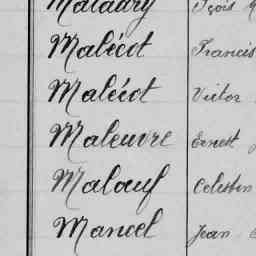 Malaury Fçois
Malécot Francis
Malécot Victor
Maleuvre Ernest
Malouf Celestin
Manoel Jean